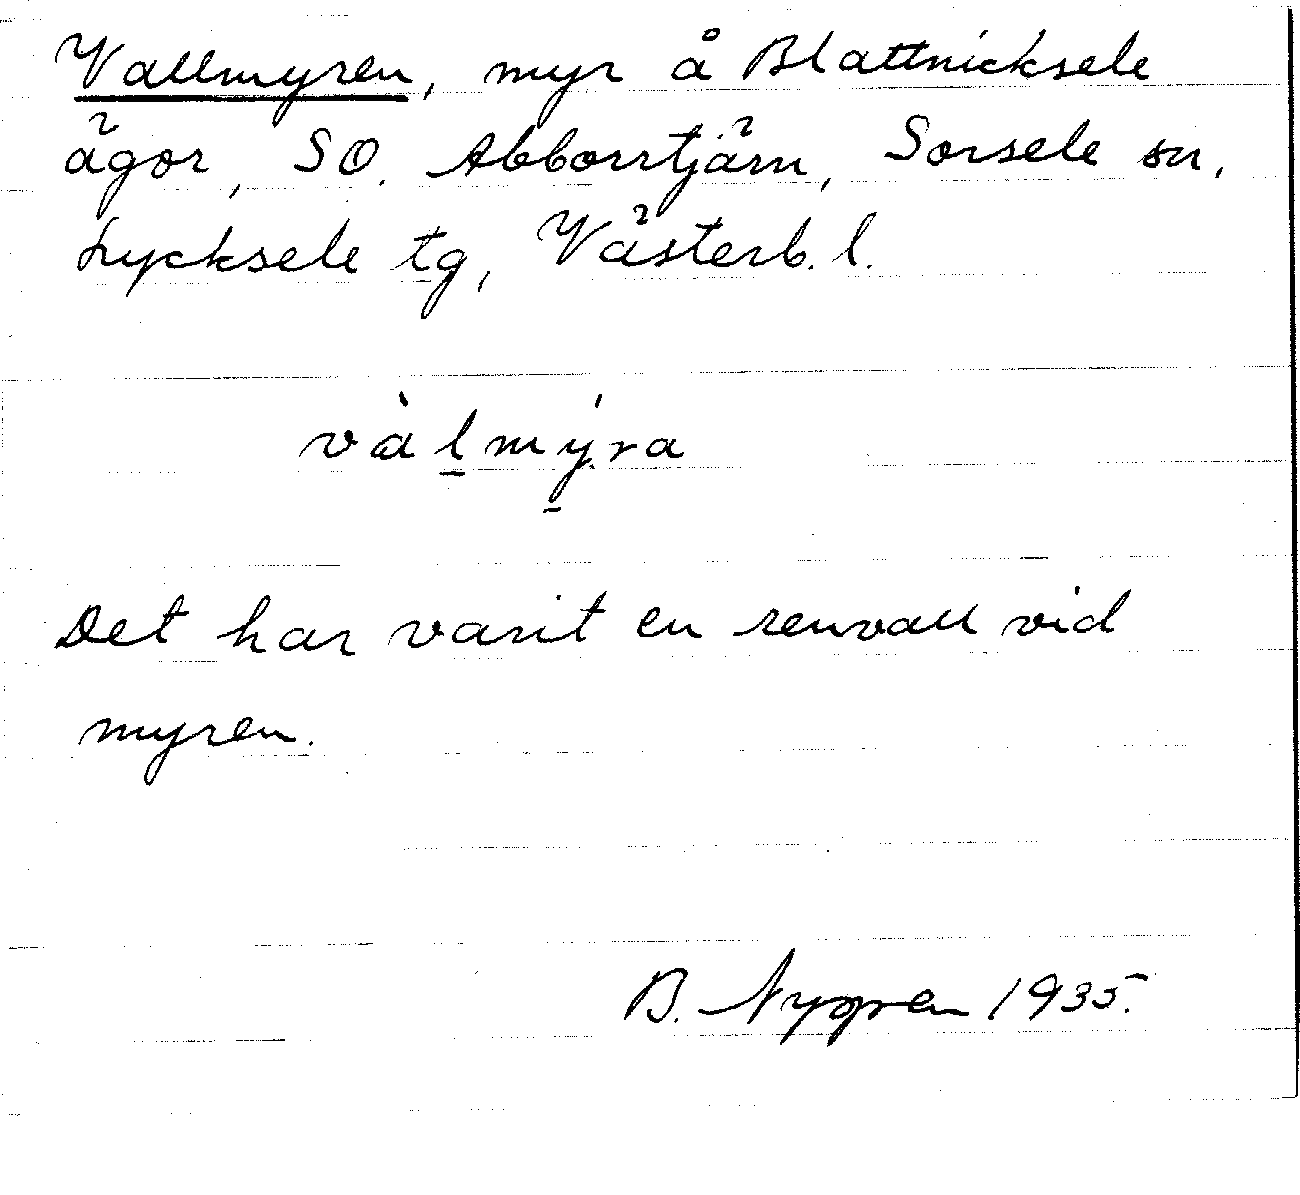 Vallmyren, myr å Blattnicksele
ägor, SO. Abborrtjärn, Sorsele sn,
Lycksele tg, Västerb. l.
vàl̠mý̠ra
Det har varit en renvall vid
myren.
B. Nygren 1935.